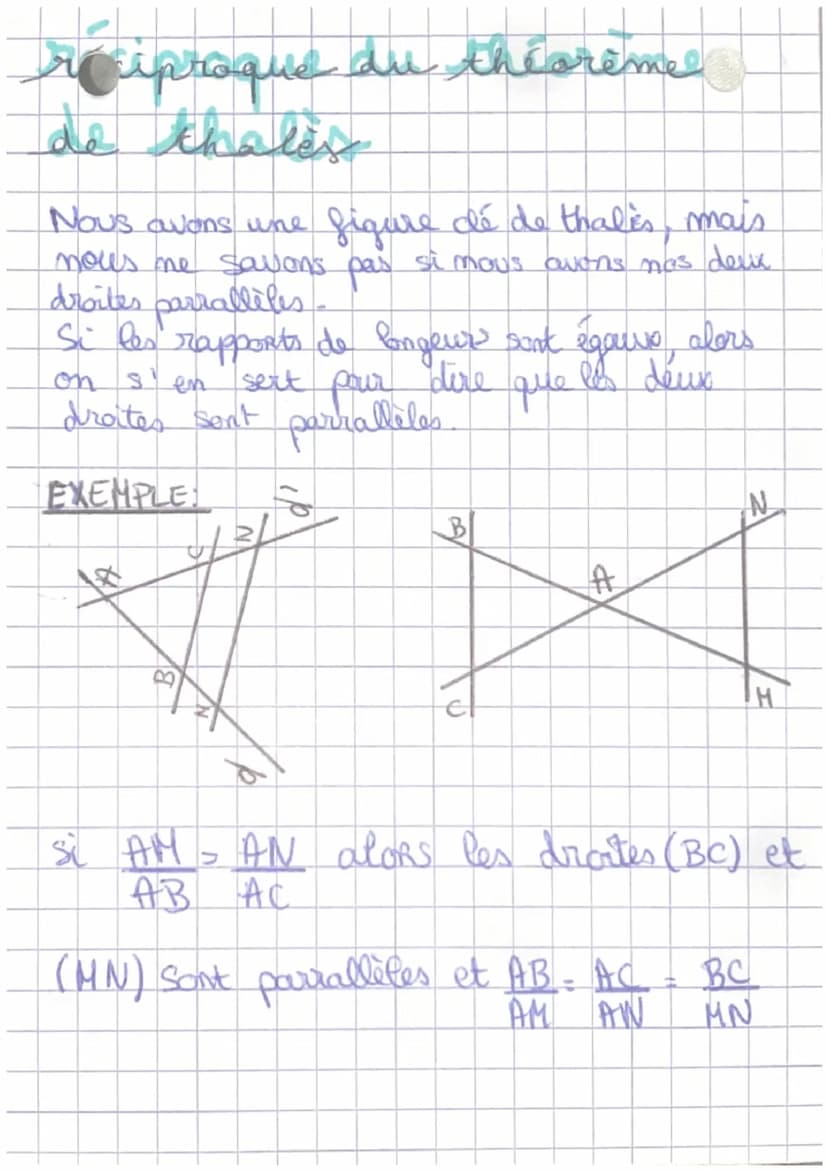 réciproque du théorème
de thalès
Nous avons une figure clé de thalès, mais
nous ne savons pas si nous avons nos deux
droites parrallèles.
Si les rapports de longeur sont égaux, alors
on s'en sert pour dire que les deux
droites sont parrallèles.
EXEMPLE:
d'
C N
A
B
M
d
B N
A
C M
si AM = AN alors les droites (BC) et
AB AC
(MN) sont parrallèles et AB = AC = BC
AM AN MN